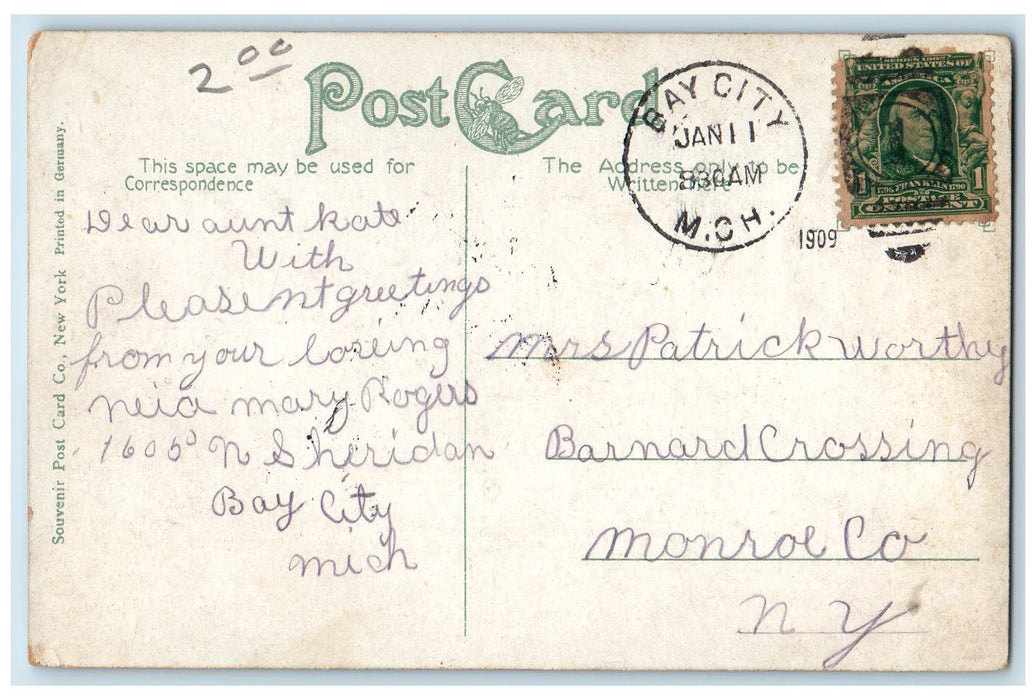 2 00
Post Card
BAY CITY
JAN 11
830AM
MICH.
1909
SERIES 1902
UNITED STATES OF
AMERICA
1 1
1706 FRANKLIN 1790
POSTAGE
ONE CENT
This space may be used for
Correspondence
The Address only to be
Written here
Dear aunt Kate
With
Pleasentgreetings
from your loveing
neia mary Rogers
1605 N Sheridan
Bay City
Mich
Mrs Patrick Worthy
Barnard Crossing
Monroe Co
N Y
Souvenir Post Card Co., New York Printed in Germany.